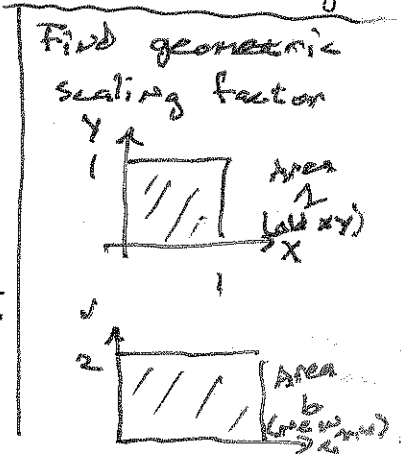 Find geometric
scaling factor
Y
1
Area
1
(old xy)
X
1
2
Area
b